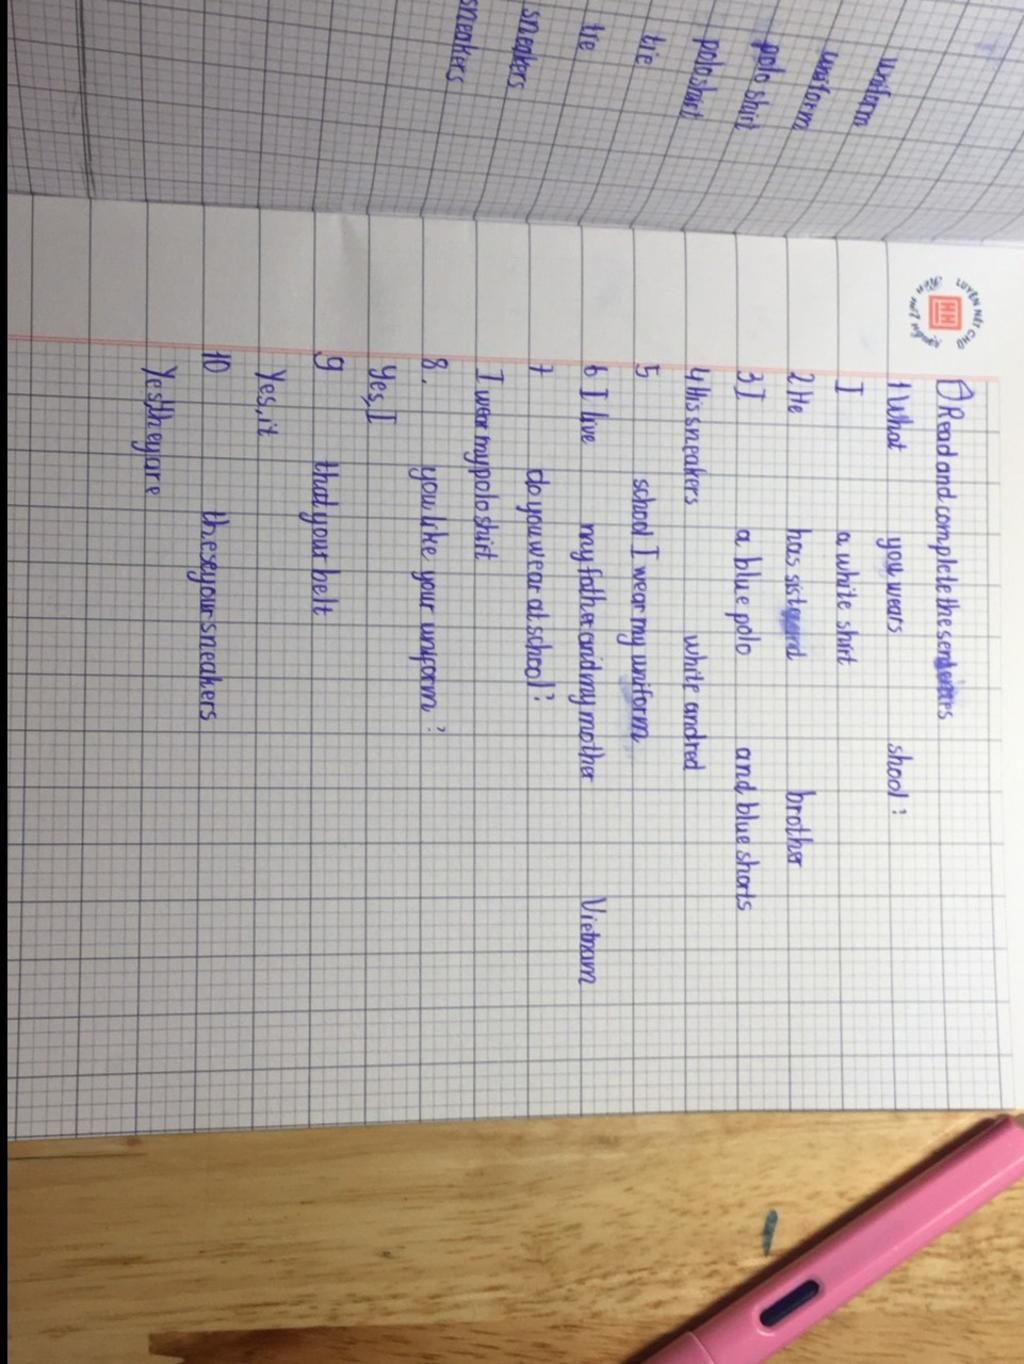 uniform
uniform
polo shirt
polo shirt
tie
tie
sneakers
sneakers
LUYỆN NÉT CHỮ
NÉT NGƯỜI
HH
Read and complete the sentences
1 What you wears shool?
I a white shirt
2 He has sist and brother
3 I a blue polo and blue shorts
4 His sneakers white and red
5 school I wear my uniform
6 I live my father and my mother Vietnam
7 do you wear at school?
I wear my polo shirt
8. you like your uniform?
Yes, I
9 that your belt
Yes, it
10 these your sneakers
Yes, they are